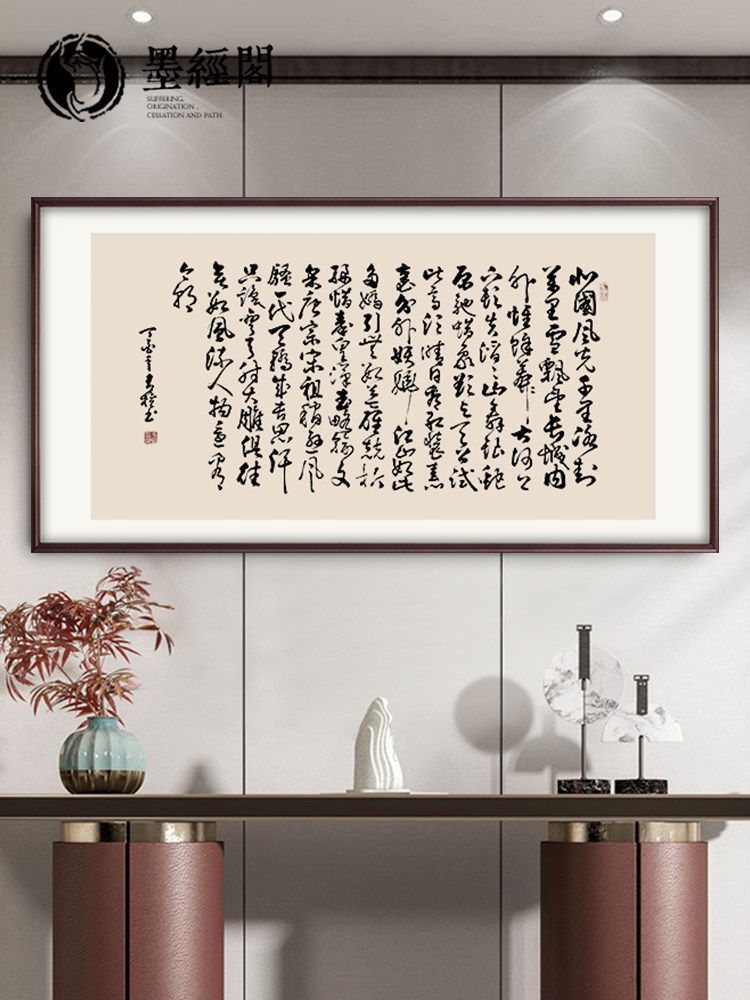 墨經閣
SUFFERING,
ORIGINATION,
CESSATION AND PATH.
北國風光千里冰封
萬里雪飄望長城内
外惟餘莽莽大河上
下頓失滔滔山舞銀蛇
原馳蠟象欲與天公試
比高須晴日看紅裝素
裹分外妖嬈江山如此
多嬌引無數英雄競折
腰惜秦皇漢武略輸文
采唐宗宋祖稍遜風
騷一代天驕成吉思汗
只識彎弓射大雕俱往
矣數風流人物還看
今朝